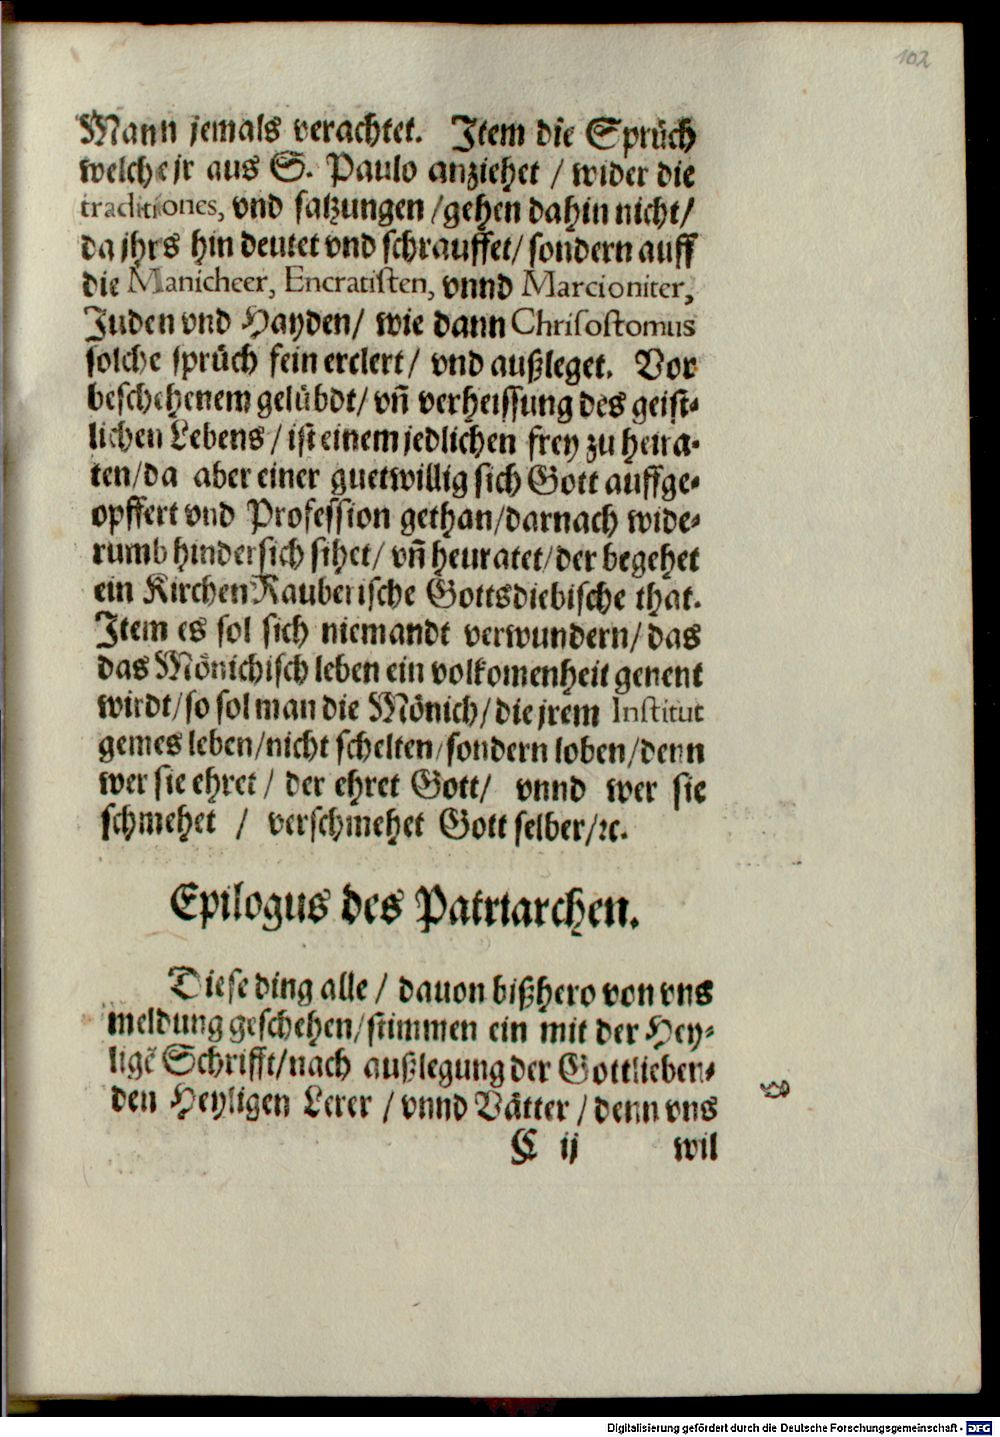 102
Mann jemals verachtet. Item die Sprüch
welche jr aus S. Paulo anziehet / wider die
traditiones, vnd satzungen / gehen dahin nicht /
da jhrs hin deutet vnd schrauffet / sondern auff
die Manicheer, Encratisten, vnnd Marcioniter,
Juden vnd Hayden / wie dann Chrisostomus
solche sprüch fein erclert / vnd außleget. Vor
beschehenem gelübdt / vñ verheissung des geist-
lichen Lebens / ist einem jedlichen frey zu heira-
ten / da aber einer guetwillig sich Gott auffge-
opffert vnd Profession gethan / darnach wide-
rumb hindersich sihet / vñ heuratet / der begehet
ein Kirchen Rauberische Gottsdiebische that.
Item es sol sich niemandt verwundern / das
das Mönichisch leben ein volkomenheit genent
wirdt / so sol man die Mönich / die jrem Institut
gemes leben / nicht schelten / sondern loben / denn
wer sie ehret / der ehret Gott / vnnd wer sie
schmehet / verschmehet Gott selber / ꝛc.
Epilogus des Patriarchen.
Diese ding alle / dauon bißhero von vns
meldung geschehen / stimmen ein mit der Hey-
ligē Schrifft / nach außlegung der Gottlieben-
den Heyligen Lerer / vnnd Vätter / denn vns
C ij wil
Digitalisierung gefördert durch die Deutsche Forschungsgemeinschaft - DFG